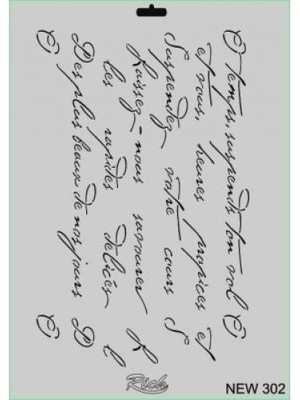 O temps, suspends ton vol O
et vous, heures propices et
Suspendez votre cours S
Laissez-nous savourer L
les rapides délices l
Des plus beaux de nos jours D
O O
Rich
NEW 302